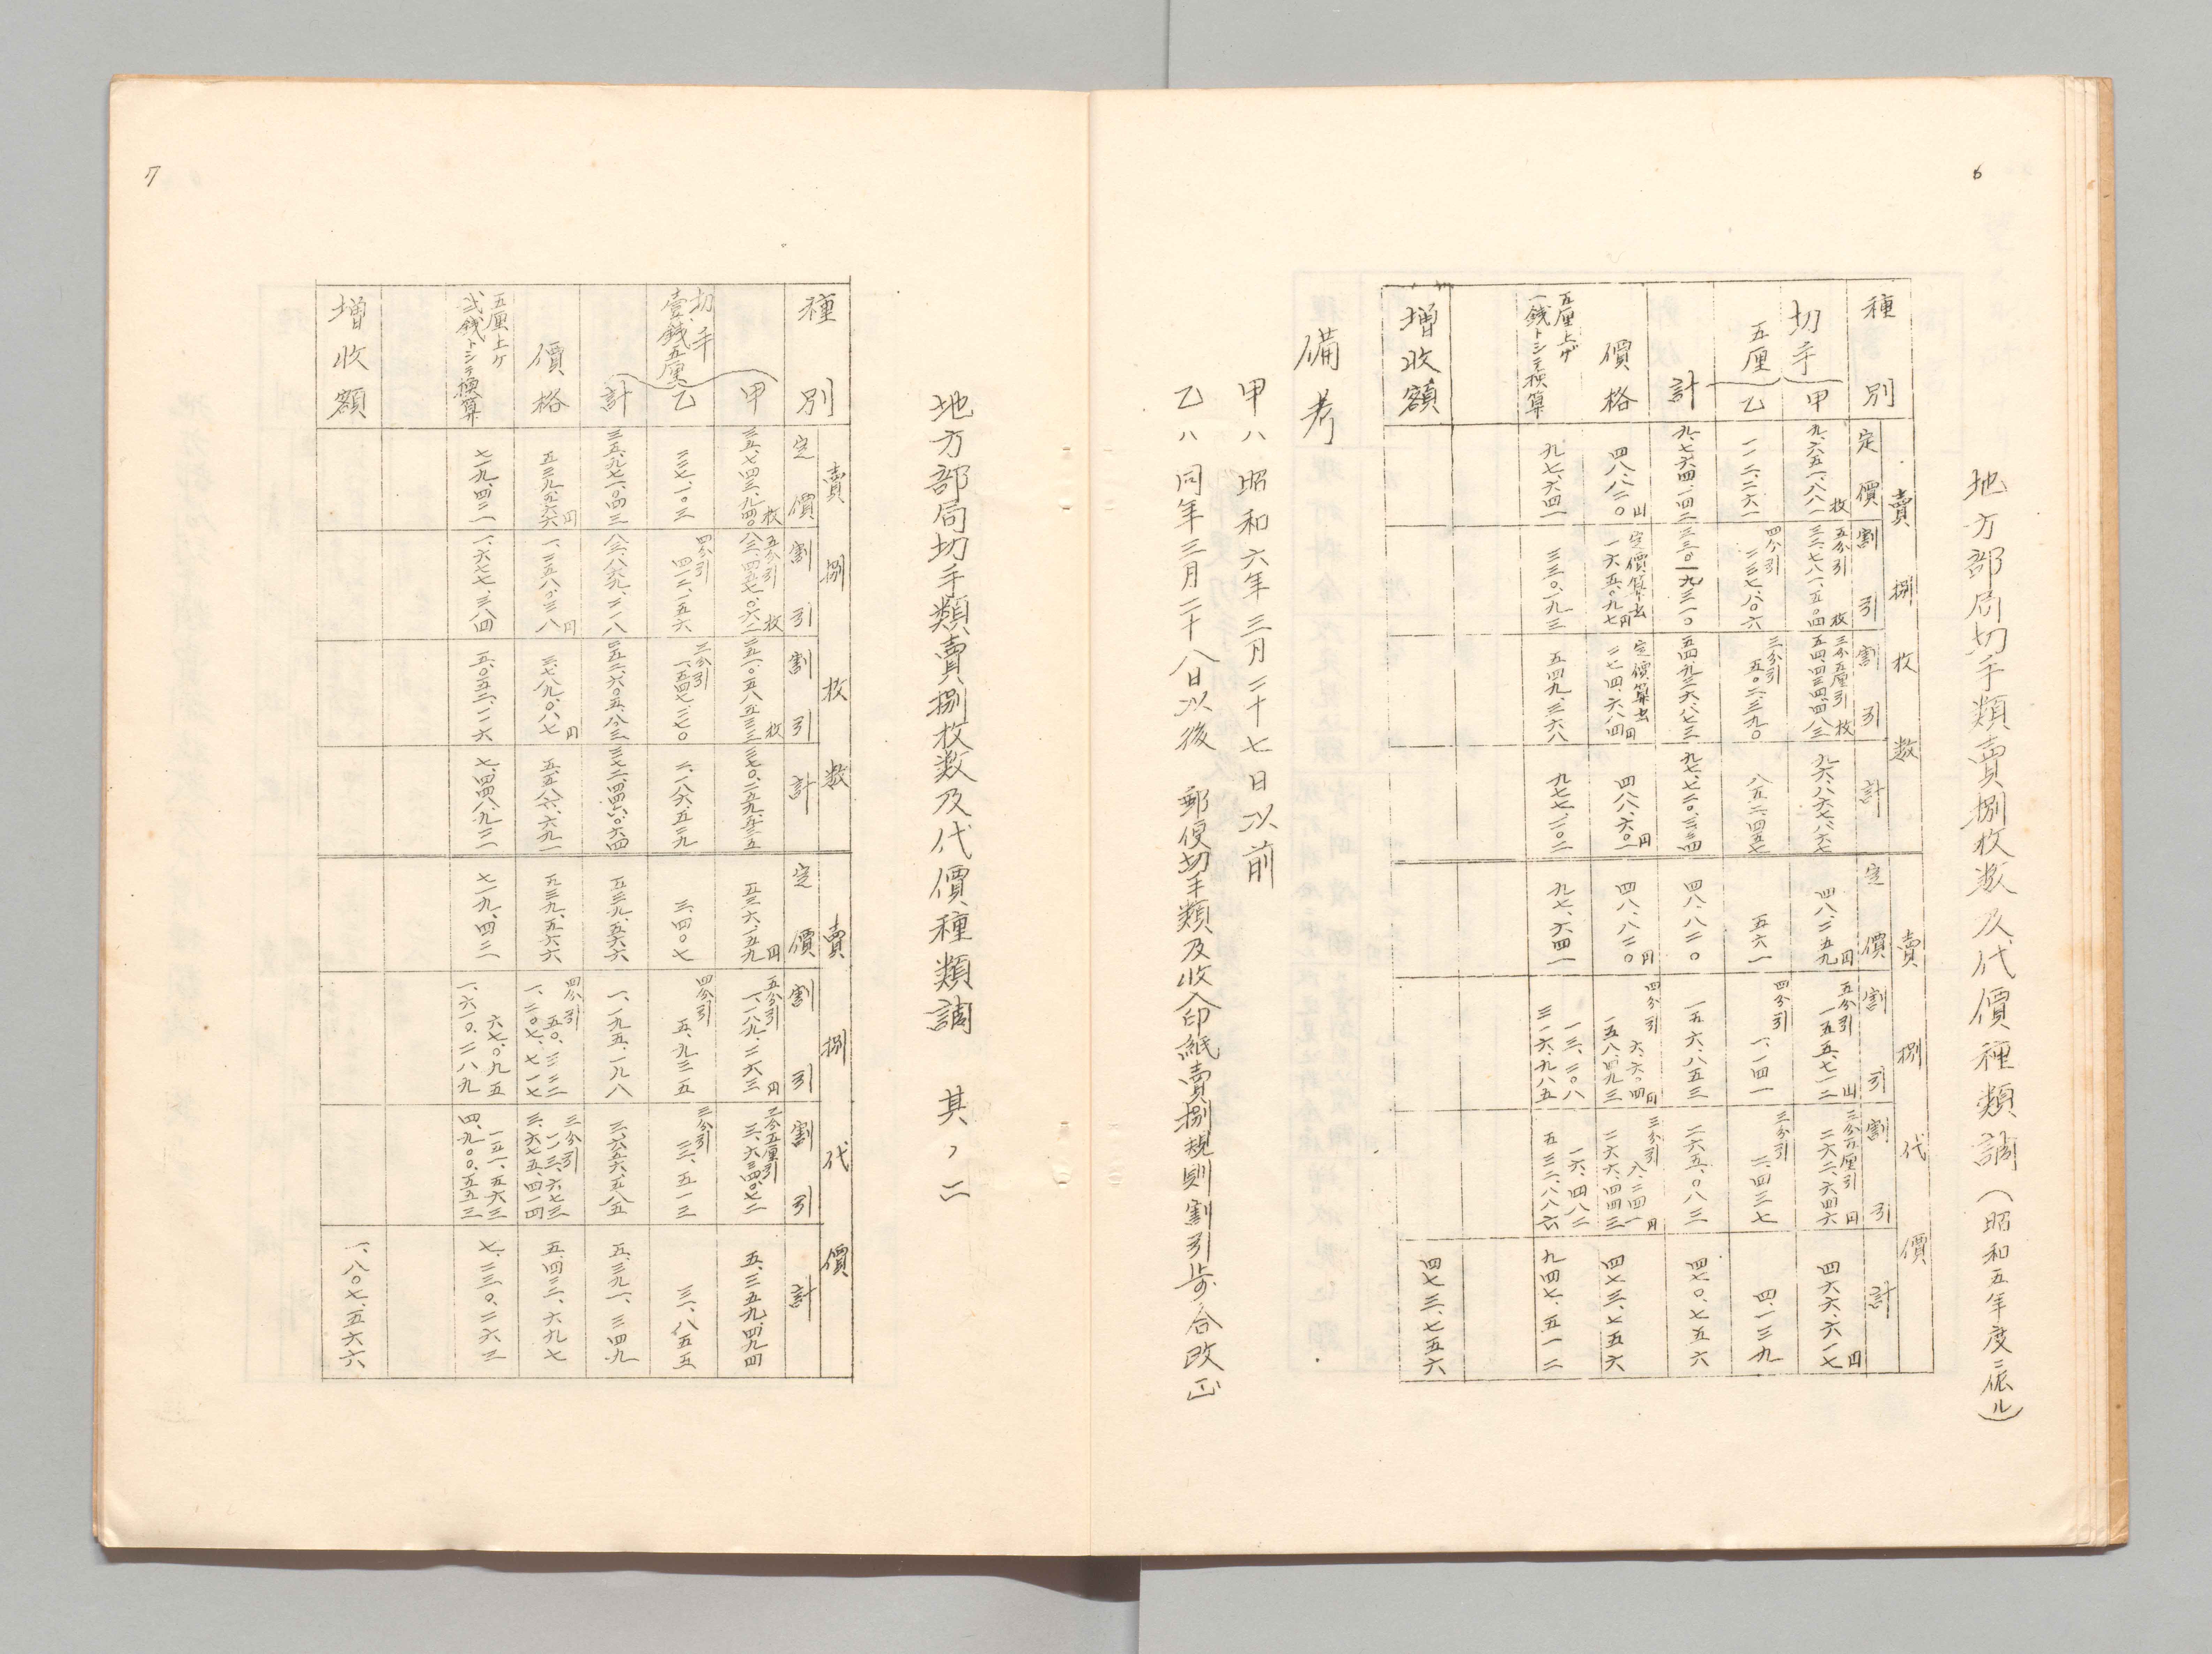 6
地方部局切手類賣捌枚数及代價種類調（昭和五年度ニ依ル）
賣捌枚数 賣捌代價
種別 定價 割引 割引 計 定價 割引 割引 計
切手五厘
甲 九、六五一、八八一枚 五分引 三二、七八一、五〇四枚 三分五厘引 五四、四三四、四八三枚 九六、八六七、八六七 四八、二五九円 五分引 一五五、七一二円 三分五厘引 二六二、六四六円 四六六、六一七円
乙 一一二、二六一 四分引 二三七、八〇六 三分引 五〇二、三九〇 八五二、四五七 五六一 四分引 一、一四一 三分引 二、四三七 四、一三九
計 九、七六四、一四二 三三、〇一九、三一〇 五四、九三六、八七三 九七、七二〇、三二四 四八、八二〇 一五六、八五三 二六五、〇八三 四七〇、七五六
價格 四八、八二〇円 定價算出 一六五、〇九七円 定價算出 二七四、六八四円 四八八、六〇一円 四八、八二〇円 四分引 六、六〇四円 一五八、四九三 三分引 八、二四一円 二六六、四四三 四七三、七五六
五厘上ゲ一銭トシテ換算 九七、六四一 三三〇、一九三 五四九、三六八 九七七、二〇二 九七、六四一 一三、二〇八 三一六、九八五 一六、四八二 五三二、八八六 九四七、五一二
増收額 四七三、七五六
備考
甲ハ昭和六年三月二十七日以前
乙ハ同年三月二十八日以後 郵便切手類及收入印紙賣捌規則割引歩合改正
7
地方部局切手類賣捌枚数及代價種類調 其ノ二
賣捌枚数 賣捌代價
種別 定價 割引 割引 計 定價 割引 割引 計
切手壹銭五厘
甲 三五、七四三、九四〇枚 五分引 八三、四五七、〇六二枚 二五一、〇五八、五三三枚 三七〇、二五九、五三五 五三六、一五九円 五分引 一、一八九、二六三円 三分五厘引 三、六三四、〇七二 五、三五九、四九四
乙 二二七、一〇三 四分引 四一二、一五六 三分引 一、五四七、二七〇 二、一八六、五二九 三、四〇七 四分引 五、九三五 三分引 二二、五一三 三一、八五五
計 三五、九七一、〇四三 八三、八六九、二一八 二五二、六〇五、八〇三 三七二、四四六、〇六四 五三九、五六六 一、一九五、一九八 三、六五六、五八五 五、三九一、三四九
價格 五三九、五六六円 一、二五八、〇三八円 三、七八九、〇八七円 五、五八六、六九一 五三九、五六六 四分引 五〇、三二二 一、二〇七、七一七 三分引 一一三、六七三 三、六七五、四一四 五、四二二、六九七
五厘上ケ弐銭トシテ換算 七一九、四二一 一、六七七、三八四 五、〇五二、一一六 七、四四八、九二一 七一九、四二一 六七、〇九五 一、六一〇、二八九 一五一、五六三 四、九〇〇、五五三 七、二三〇、二六三
増收額 一、八〇七、五六六